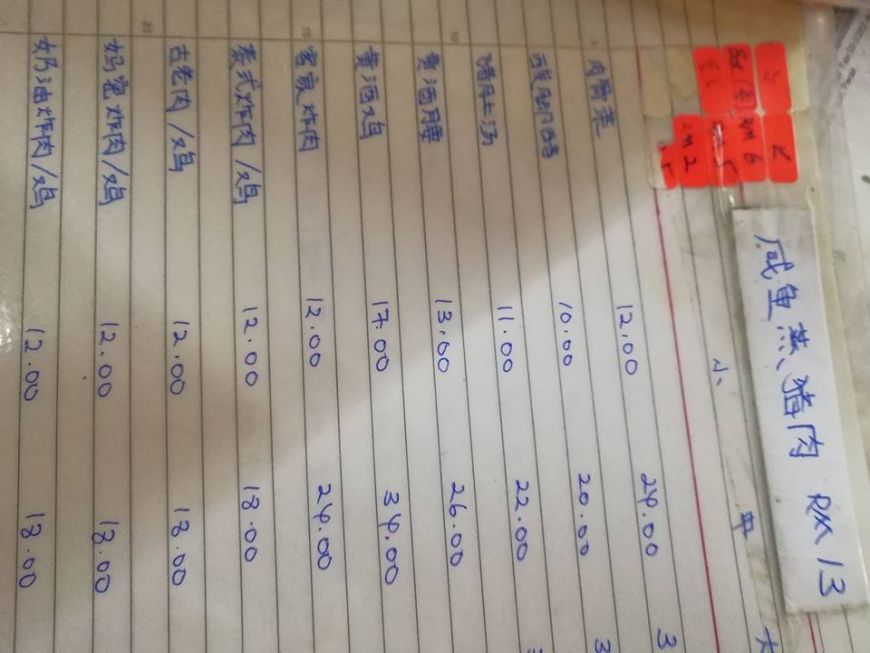 咸鱼蒸猪肉 RM 13
RM 6
RM 2
小 中 大
肉骨茶 12.00 24.00 3
10.00 20.00 3
猪肚汤 11.00 22.00
黄酒腰 13.00 26.00
黄酒鸡 17.00 34.00
客家炸肉 12.00 24.00
泰式炸肉/鸡 12.00 18.00
古老肉/鸡 12.00 18.00
妈蜜炸肉/鸡 12.00 18.00
奶油炸肉/鸡 12.00 18.00